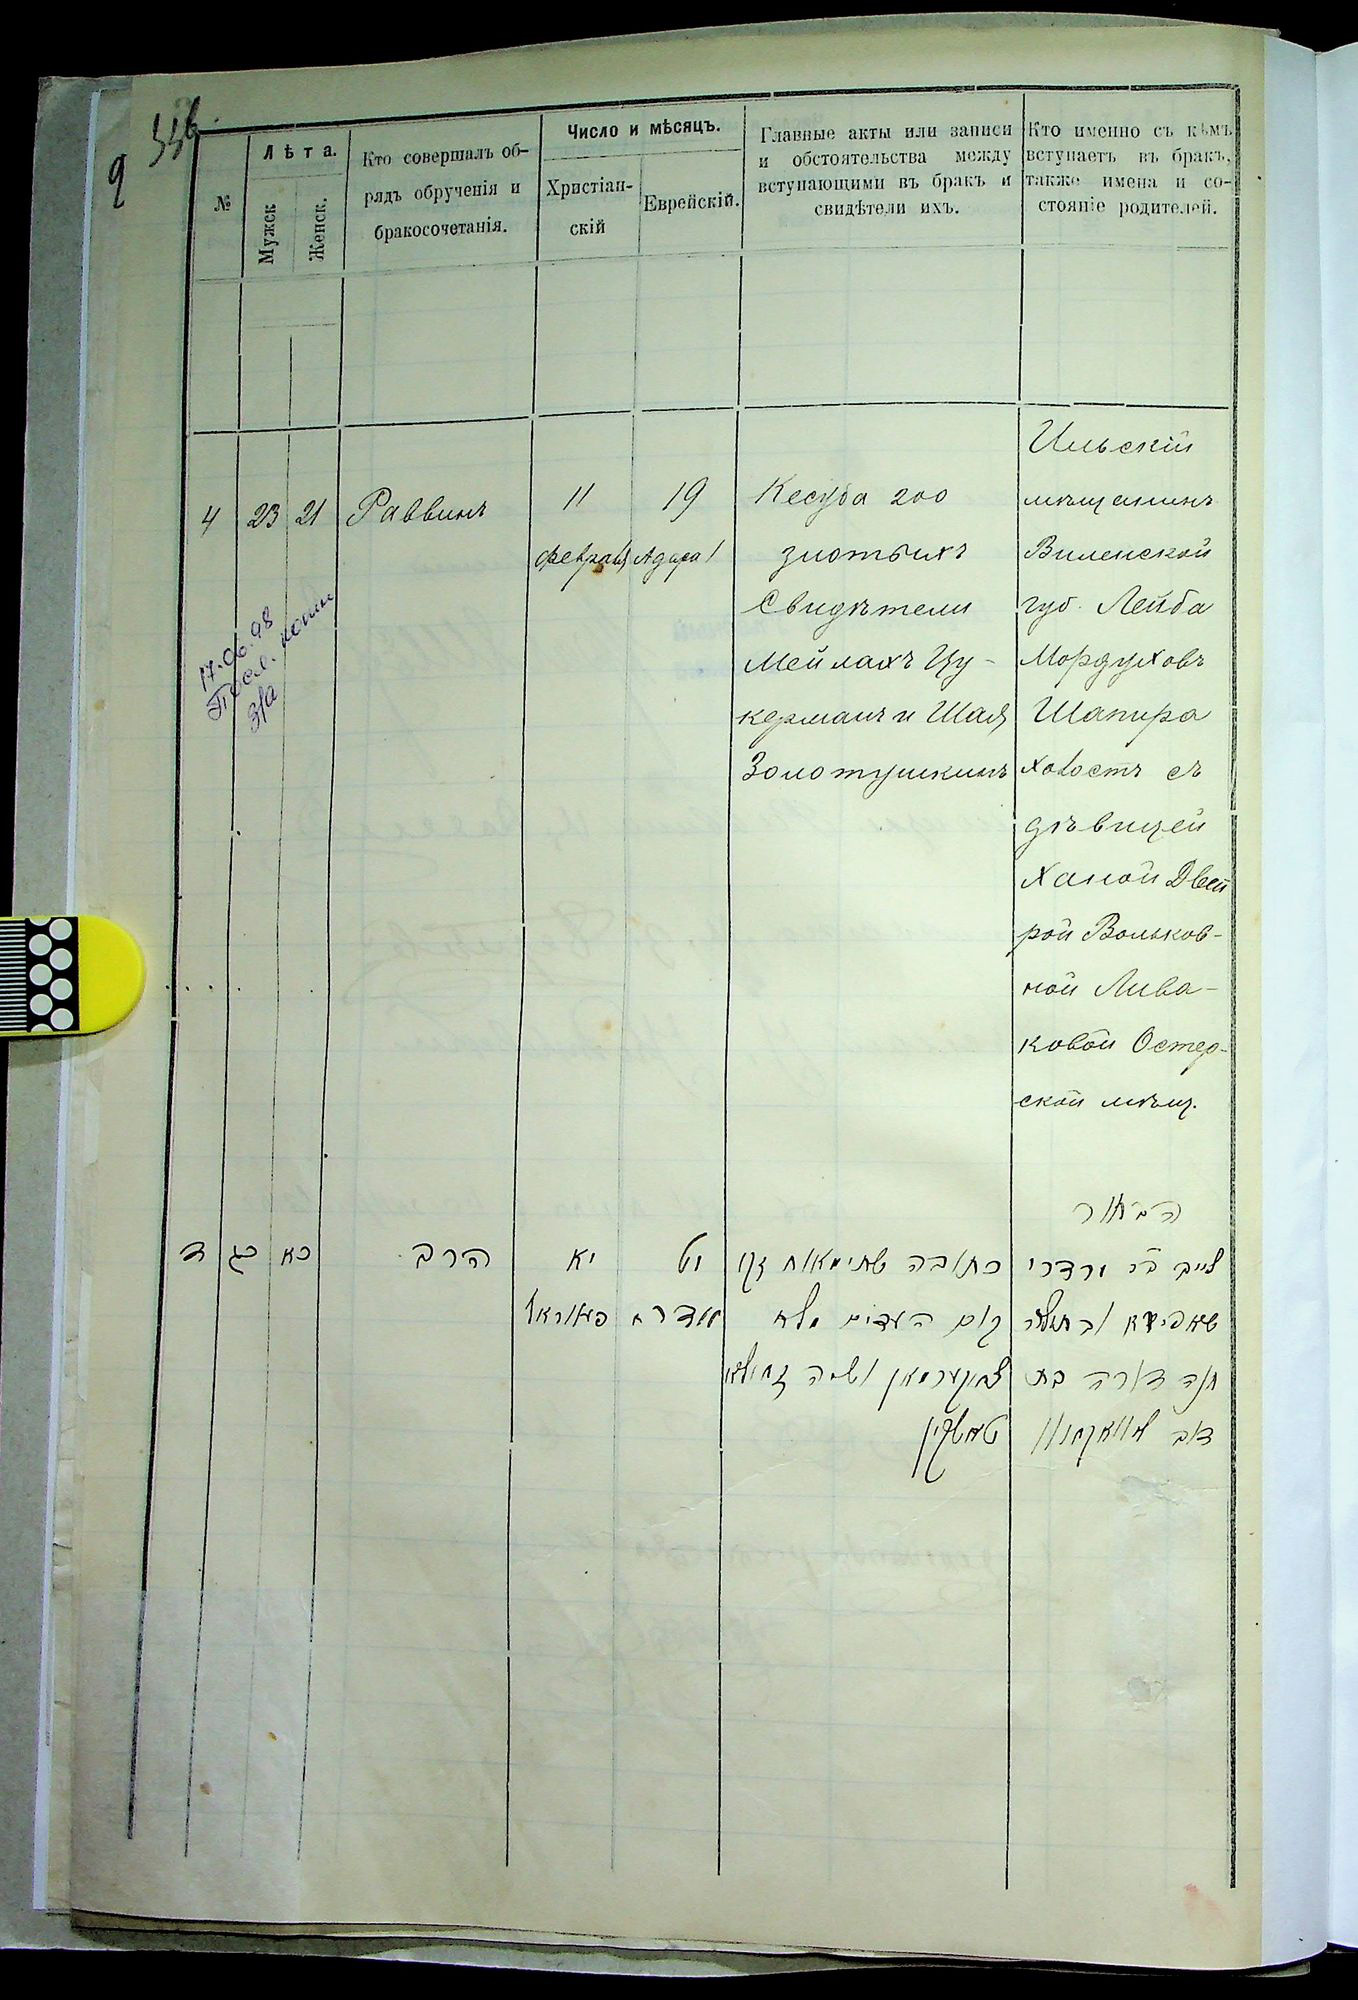 9
№
Лѣта.
Мужск
Женск.
Кто совершалъ об-
рядъ обрученія и
бракосочетанія.
Число и мѣсяцъ.
Христіан-
скій
Еврейскій.
Главные акты или записи
и обстоятельства между
вступающими въ бракъ и
свидѣтели ихъ.
Кто именно съ кѣмъ
вступаетъ въ бракъ,
также имена и со-
стояніе родителей.
4
23
21
Раввинъ
11
февраля
19
Адара 1
Кесуба 200
злотыхъ
Свидѣтели
Мейлахъ Цу-
керманъ и Шая
Золотушкинъ
Ильскій
мѣщанинъ
Виленской
губ. Лейба
Мордуховъ
Шапира
холостъ съ
дѣвицей
Ханой Двей
рой Вольков-
ной Лива-
ковой Остер-
ской мѣщ.
17.06.98
копии
ד
כג
כא
הרב
יא
פעוראל
יט
אדר א
כתובה
העדים מלך
צוקערמאן ושיה
הבחור
לייב
שאפירא
חנה דורה בת